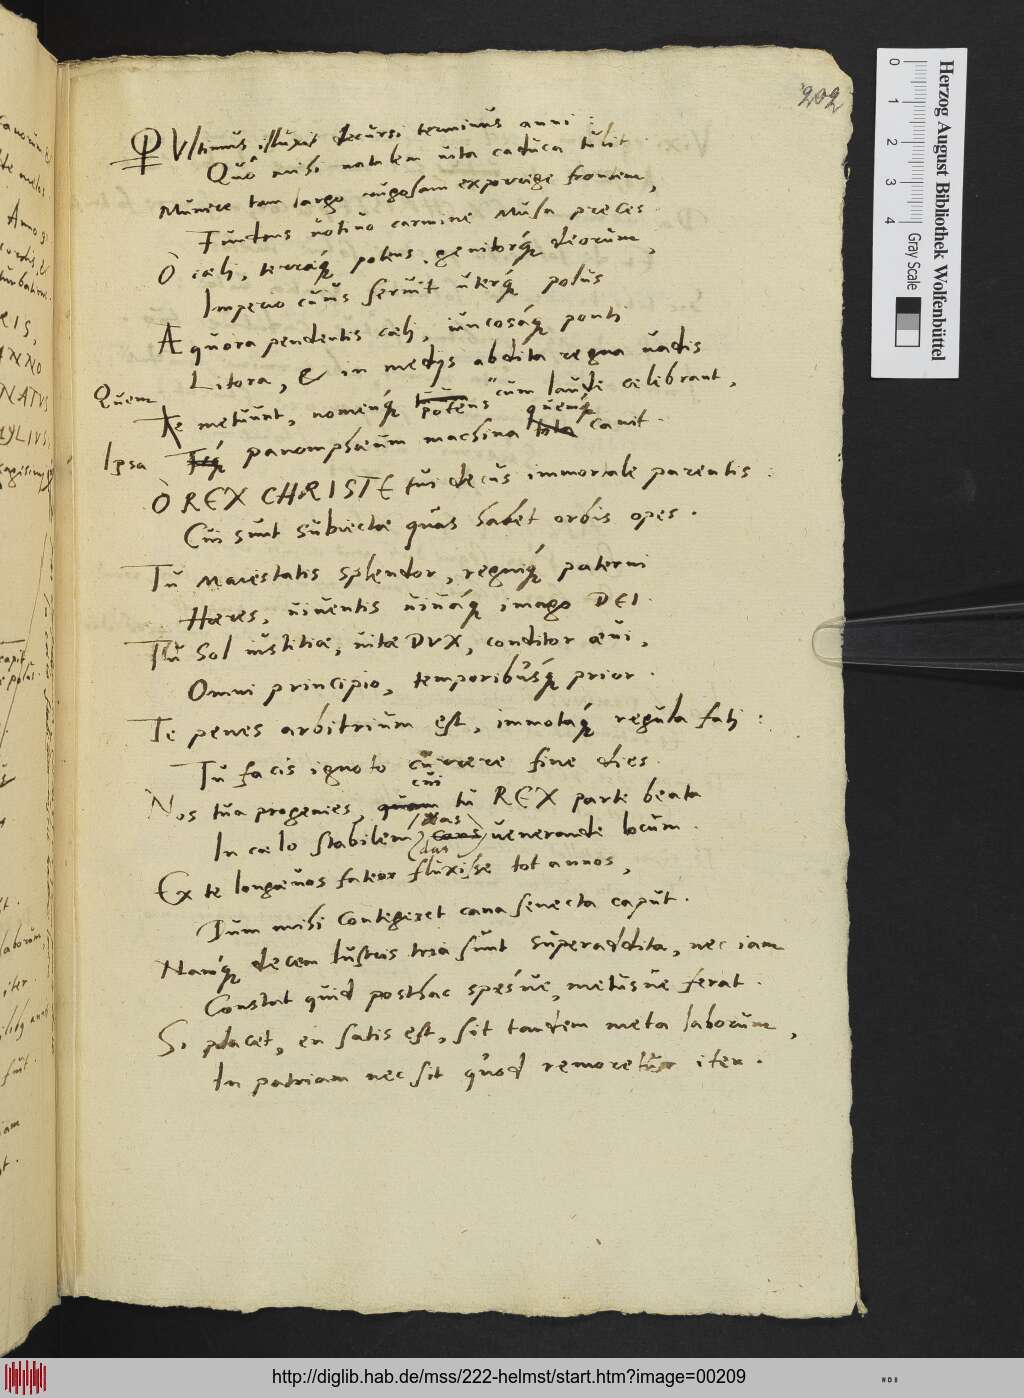 202
Vltimus illuxit decursi terminus anni :
Quô mihi natalem uita caduca tulit
Munere tam largo rugosam exporrige frontem,
Functus uotiuo carmine Musa preces.
Ô cæli, terræq́; potens, genitorq́; deorum,
Imperio cuius seruit uterq́; polus
Æquora pendentis cæli, iuncosaq́; ponti
Litora, & in medijs abdita regna uadis
Quem
Te metuunt, nomenq́; tuum potens cum laude celebrant,
quemq́;
Ipsa Teq́; panomphæum machina tota canit.
Ô REX CHRISTE tui decus immortale parentis :
Cui sunt subiectæ quas habet orbis opes.
Tu Maiestatis splendor, regniq́; paterni
Hæres, uiuentis uiuaq́; imago DEI.
Tu Sol iustitiæ, uitæ DVX, conditor æui,
Omni principio, temporibusq́; prior.
Te penes arbitrium est, immotaq́; regula fati :
Tu facis ignoto currere fine dies.
cui
Nos tua progenies, quam tu REX parte beata
In cælo stabilem das uenerande locum.
Ex te longæuos fateor fluxisse tot annos,
Dum mihi contegeret cana senecta caput.
Namq́; decem lustris tria sunt superaddita, nec iam
Constat quid posthac spesúe, metusúe ferat.
Si placet, en satis est, sit tandem meta laborum,
In patriam nec sit quod remoretur iter.
Herzog August Bibliothek Wolfenbüttel
0 1 2 3 4 Gray Scale
http://diglib.hab.de/mss/222-helmst/start.htm?image=00209